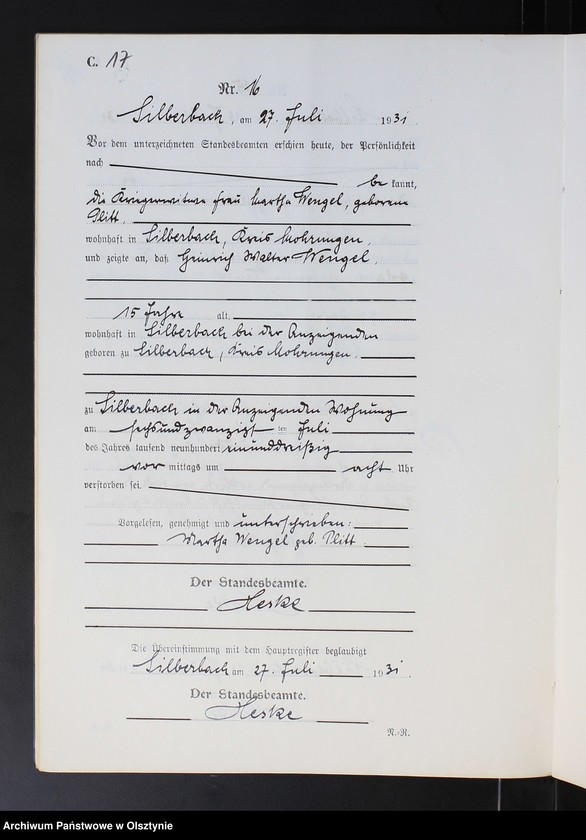 C. 17
Nr. 16
Silberbach, am 27. Juli 1931.
Vor dem unterzeichneten Standesbeamten erschien heute, der Persönlichkeit
nach be kannt,
die Kriegerwitwe Frau Martha Wengel, geborene
Plitt.
wohnhaft in Silberbach, Kreis Mohrungen,
und zeigte an, daß Heinrich Walter Wengel,
15 Jahre alt,
wohnhaft in Silberbach bei der Anzeigenden
geboren zu Silberbach, Kreis Mohrungen.
zu Silberbach in der Anzeigenden Wohnung
am sechsundzwanzigsten Juli
des Jahres tausend neunhundert einunddreißig
vor mittags um acht Uhr
verstorben sei.
Vorgelesen, genehmigt und unterschrieben:
Martha Wengel geb. Plitt.
Der Standesbeamte.
Heske
Die Übereinstimmung mit dem Hauptregister beglaubigt
Silberbach am 27. Juli 1931.
Der Standesbeamte.
Heske
R.-R.
Archiwum Państwowe w Olsztynie